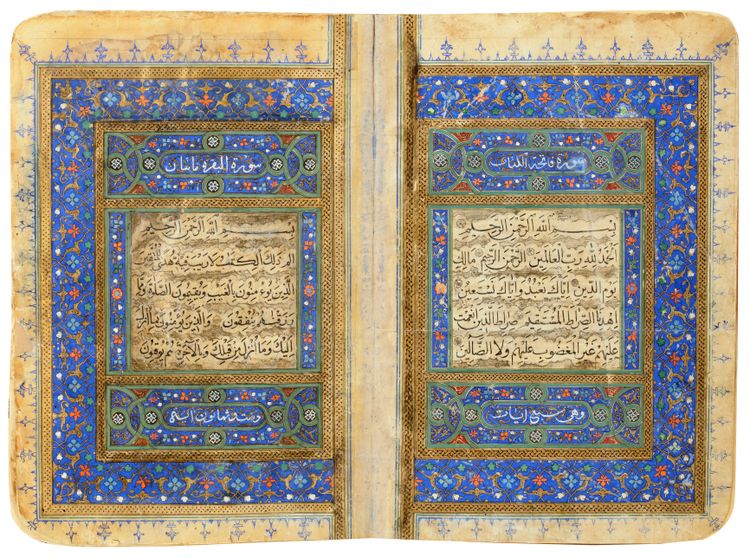 سورة فاتحة الكتاب
بِسْمِ اللَّهِ الرَّحْمَٰنِ الرَّحِيمِ
الْحَمْدُ لِلَّهِ رَبِّ الْعَالَمِينَ الرَّحْمَٰنِ الرَّحِيمِ مَالِكِ
يَوْمِ الدِّينِ إِيَّاكَ نَعْبُدُ وَإِيَّاكَ نَسْتَعِينُ
اهْدِنَا الصِّرَاطَ الْمُسْتَقِيمَ صِرَاطَ الَّذِينَ أَنْعَمْتَ
عَلَيْهِمْ غَيْرِ الْمَغْضُوبِ عَلَيْهِمْ وَلَا الضَّالِّينَ
وهي سبع ايات
سورة البقرة مائتان
بِسْمِ اللَّهِ الرَّحْمَٰنِ الرَّحِيمِ
الم ذَٰلِكَ الْكِتَابُ لَا رَيْبَ فِيهِ هُدًى لِلْمُتَّقِينَ
الَّذِينَ يُؤْمِنُونَ بِالْغَيْبِ وَيُقِيمُونَ الصَّلَاةَ وَمِمَّا
رَزَقْنَاهُمْ يُنْفِقُونَ وَالَّذِينَ يُؤْمِنُونَ بِمَا أُنْزِلَ
إِلَيْكَ وَمَا أُنْزِلَ مِنْ قَبْلِكَ وَبِالْآخِرَةِ هُمْ يُوقِنُونَ
وست وثمانون